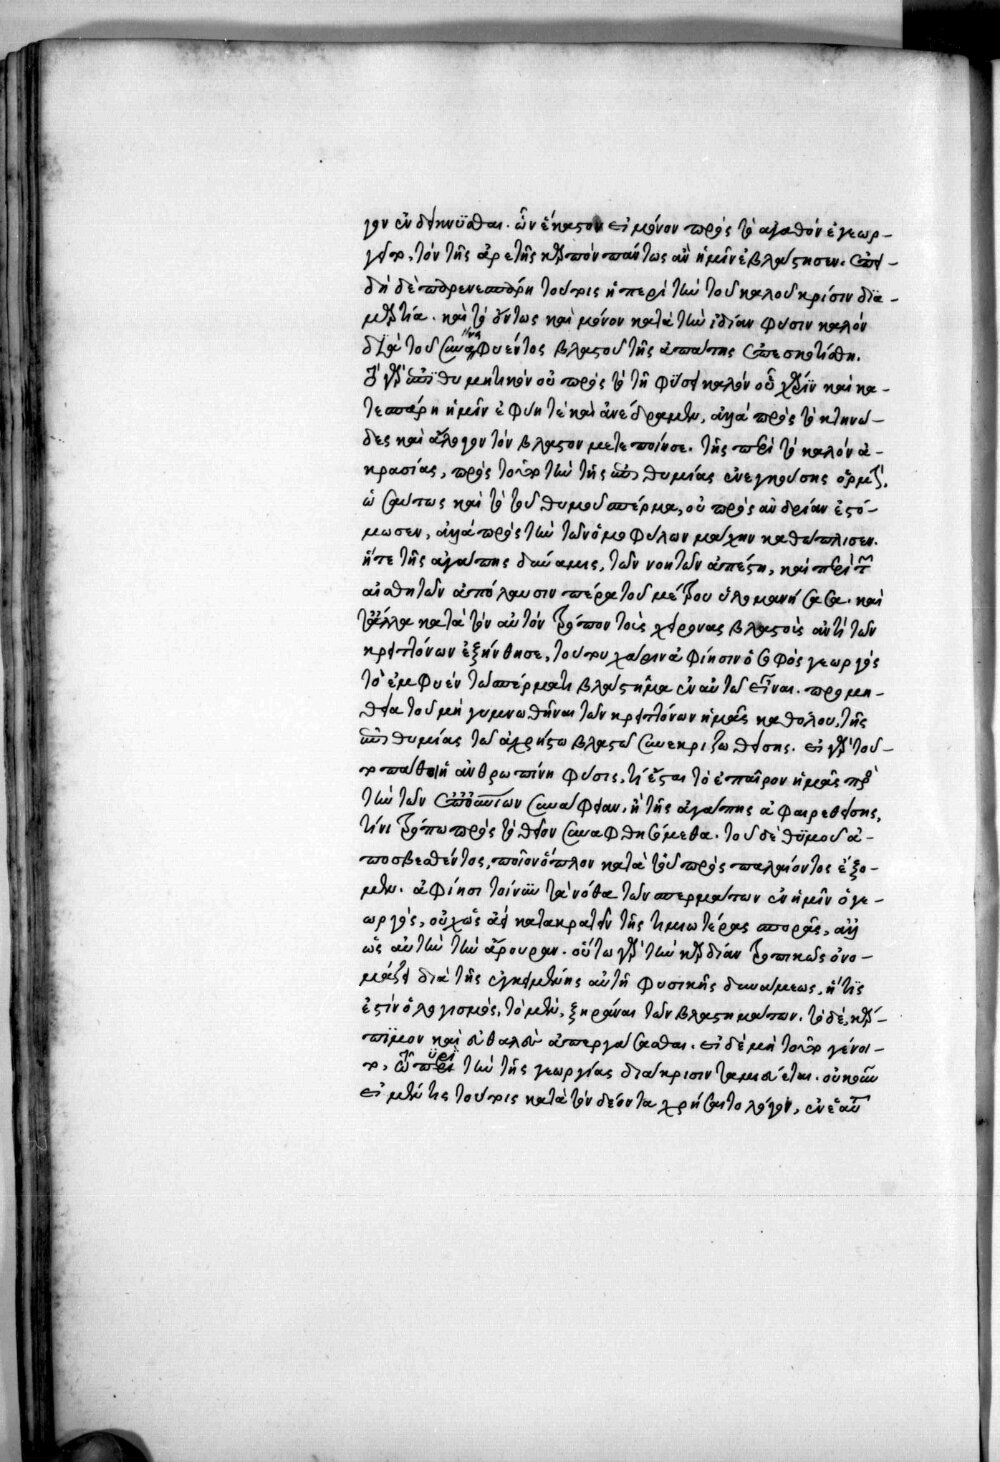 γον ἐνδείκνυσθαι. ὧν ἕκαστον εἰ μόνον πρὸς τὸ ἀγαθὸν ἐγεωρ-
γεῖτο, τὸν τῆς ἀρετῆς καρπὸν πάντως ἂν ἡμῖν ἐβλάστησεν. ἐπει-
δὴ δὲ παρενεσπάρη τούτοις ἡ περὶ τὴν τοῦ καλοῦ κρίσιν δια-
μαρτία. καὶ τὸ ὄντως καὶ μόνον κατὰ τὴν ἰδίαν φύσιν καλὸν
διὰ τοῦ συναναφυέντος βλαστοῦ τῆς ἀπάτης ἐπεσκοτίσθη.
τὸ γὰρ ἐπιθυμητικὸν οὐ πρὸς τὸ τῇ φύσει καλὸν οὗ χάριν καὶ κα-
τεσπάρη ἡμῖν ἐφύη τε καὶ ἀνέδραμεν, ἀλλὰ πρὸς τὸ κτηνῶ-
δες καὶ ἄλογον τὸν βλαστὸν μετεποίησε. τῆς περὶ τὸ καλὸν ἀ-
κρασίας, πρὸς τοῦτο τὴν τῆς ἐπιθυμίας ἐνεγκούσης ὁρμήν.
ὡσαύτως καὶ τὸ τοῦ θυμοῦ σπέρμα, οὐ πρὸς ἀνδρίαν ἐστό-
μωσεν, ἀλλὰ πρὸς τὴν τῶν ὁμοφύλων μάχην καθώπλισεν.
ἥ τε τῆς ἀγάπης δύναμις, τῶν νοητῶν ἀπέστη, καὶ περὶ τὴν
αἰσθητῶν ἀπόλαυσιν πέρα τοῦ μέτρου ὑλομανήσασα. καὶ
τὰ ἄλλα κατὰ τὸν αὐτὸν τρόπον τοὺς χείρονας βλαστοὺς ἀντὶ τῶν
κρειττόνων ἐξήνθησε, τούτου χάριν ἀφίησιν ὁ σοφὸς γεωργὸς
τὸ ἐμφυὲν τῷ σπέρματι βλάστημα ἐν αὐτῷ εἶναι. προμη-
θεία τοῦ μὴ γυμνωθῆναι τῶν κρειττόνων ἡμᾶς καθόλου, τῆς
ἐπιθυμίας τῷ ἀχρήστῳ βλαστῷ συνεκριζωθείσης. εἰ γὰρ τοῦ-
το πάθοι ἡ ἀνθρωπίνη φύσις, τί ἔσται τὸ ἐπαῖρον ἡμᾶς πρὸς
τὴν τῶν ἐπουρανίων συνάφειαν. ἢ τῆς ἀγάπης ἀφαιρεθείσης,
τίνι τρόπῳ πρὸς τὸ θεῖον συναφθησόμεθα. τοῦ δὲ θυμοῦ ἀ-
ποσβεσθέντος, ποῖον ὅπλον κατὰ τοῦ προσπαλαίοντος ἕξο-
μεν. ἀφίησι τοίνυν τὰ νόθα τῶν σπερμάτων ἐν ἡμῖν ὁ γε-
ωργός, οὐχ ὡς ἀεὶ κατακρατεῖν τῆς τιμιωτέρας σπορᾶς, ἀλλ'
ὡς αὐτὴν τὴν ἄρουραν. οὕτω γὰρ τὴν καρδίαν τροπικῶς ὀνο-
μάζει διὰ τῆς ἐγκειμένης αὐτῇ φυσικῆς δυνάμεως, ἥτις
ἐστὶν ὁ λογισμός, τὸ μὲν, ξηρᾶναι τῶν βλαστημάτων. τὸ δὲ, κάρ-
πιμον καὶ εὐθαλὲς ἀπεργάσασθαι. εἰ δὲ μὴ τοῦτο γένοι-
το, τῷ πυρὶ τὴν τῆς γεωργίας διάκρισιν ταμιεύεται. οὐκοῦν
εἰ μέν τις τούτοις κατὰ τὸν δέοντα χρήσαιτο λόγον, ἐν ἑαυ